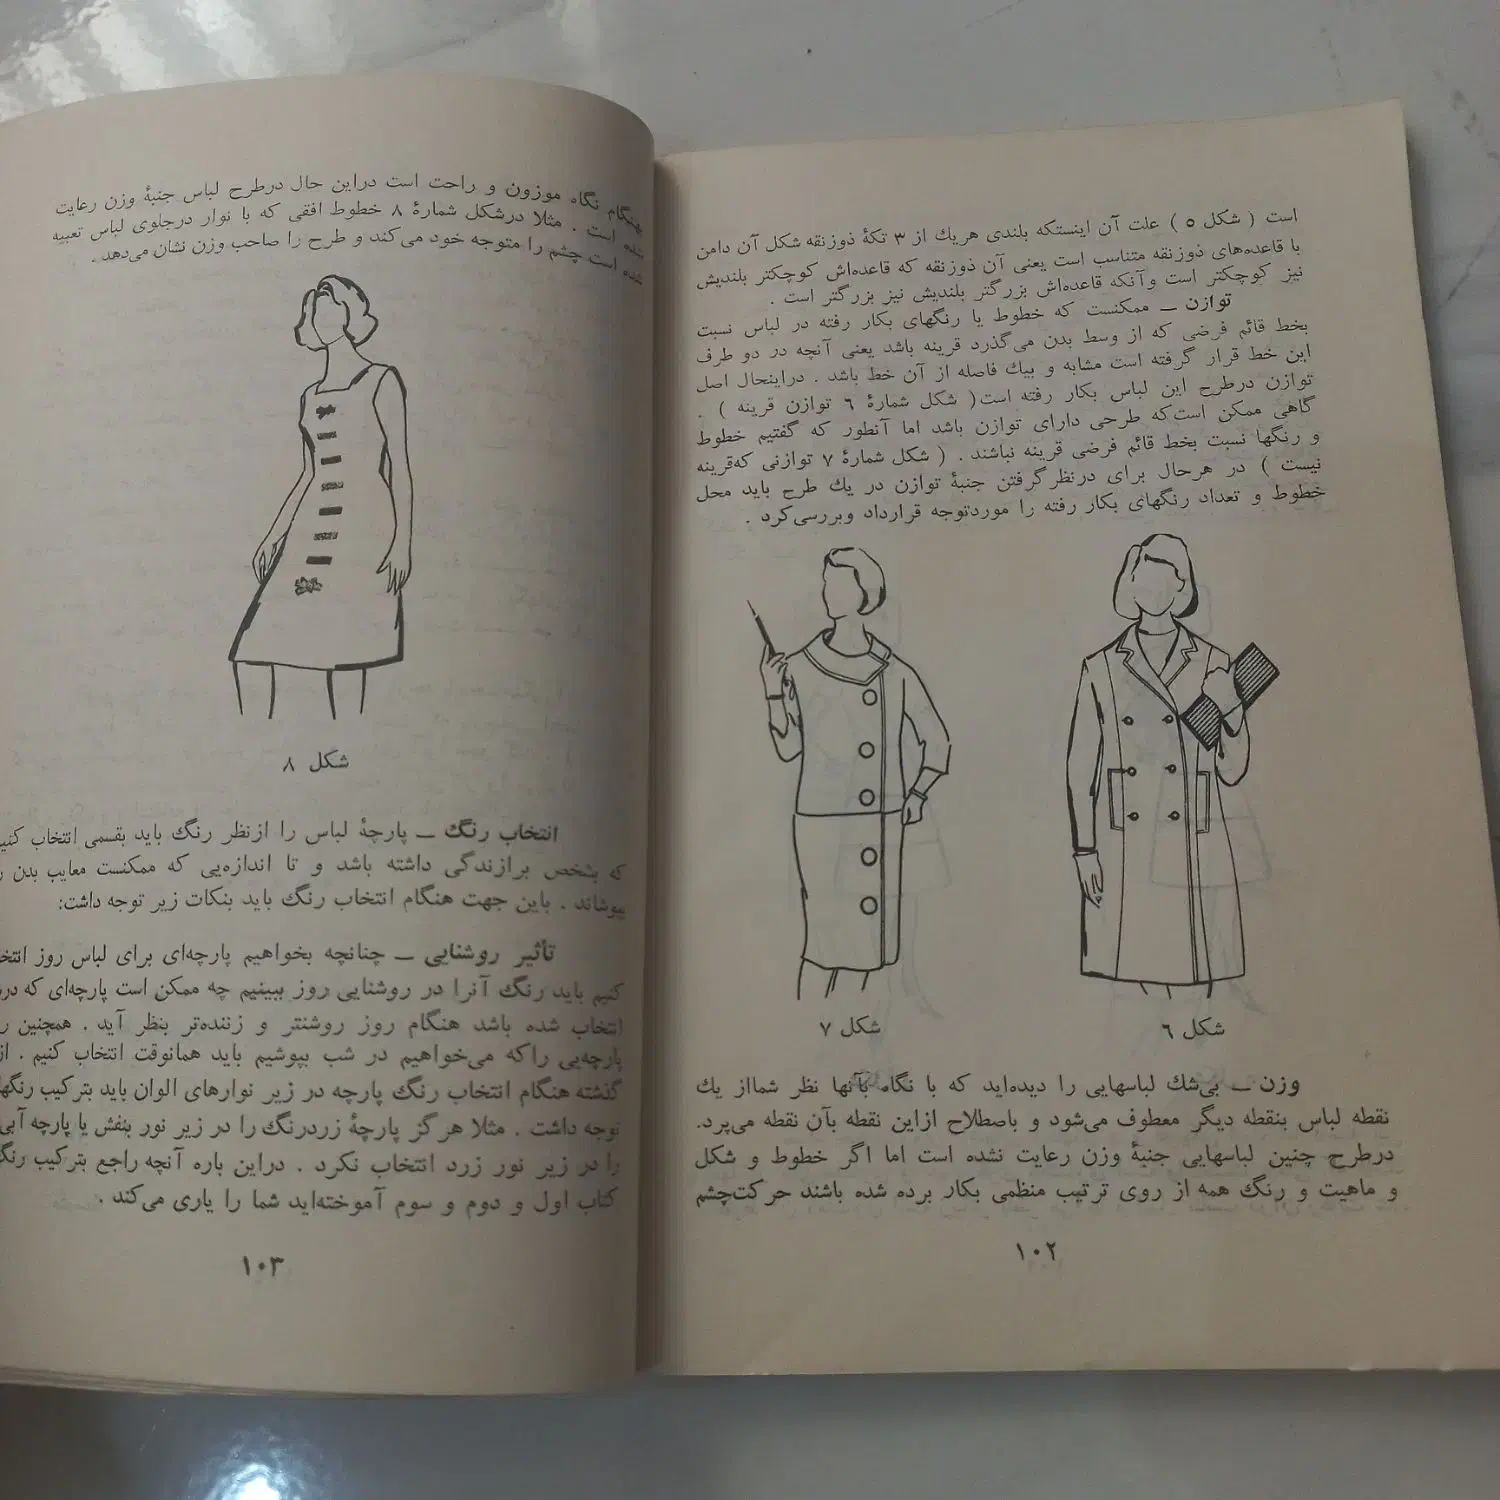 است ( شکل ۵ ) علت آن اینستکه بلندی هریك از ۳ تکهٔ ذوزنقه شکل آن دامن
با قاعده‌های ذوزنقه متناسب است یعنی آن ذوزنقه که قاعده‌اش کوچکتر بلندیش
نیز کوچکتر است وآنکه قاعده‌اش بزرگتر بلندیش نیز بزرگتر است .
توازن ــ ممکنست که خطوط یا رنگهای بکار رفته در لباس نسبت
بخط قائم فرضی که از وسط بدن می‌گذرد قرینه باشد یعنی آنچه در دو طرف
این خط قرار گرفته است مشابه و بیك فاصله از آن خط باشد . دراینحال اصل
توازن درطرح این لباس بکار رفته است( شکل شمارهٔ ٦ توازن قرینه ) .
گاهی ممکن است‌که طرحی دارای توازن باشد اما آنطور که گفتیم خطوط
و رنگها نسبت بخط قائم فرضی قرینه نباشند . ( شکل شمارهٔ ۷ توازنی که‌قرینه
نیست ) در هرحال برای درنظرگرفتن جنبهٔ توازن در یك طرح باید محل
خطوط و تعداد رنگهای بکار رفته را موردتوجه قرارداد وبررسی‌کرد .
شکل ٦
شکل ۷
وزن ــ بی‌شك لباسهایی را دیده‌اید که با نگاه بآنها نظر شمااز یك
نقطه لباس بنقطه دیگر معطوف می‌شود و باصطلاح ازاین نقطه بآن نقطه می‌پرد.
درطرح چنین لباسهایی جنبهٔ وزن رعایت نشده است اما اگر خطوط و شکل
و ماهیت و رنگ همه از روی ترتیب منظمی بکار برده شده باشند حرکت‌چشم
۱۰۲
هنگام نگاه موزون و راحت است دراین حال درطرح لباس جنبهٔ وزن رعایت
شده است . مثلا درشکل شمارهٔ ۸ خطوط افقی که با نوار درجلوی لباس تعبیه
شده است چشم را متوجه خود می‌کند و طرح را صاحب وزن نشان می‌دهد .
شکل ۸
انتخاب رنگ ــ پارچهٔ لباس را ازنظر رنگ باید بقسمی انتخاب
که بشخص برازندگی داشته باشد و تا اندازه‌یی که ممکنست معایب بدن
بپوشاند . باین جهت هنگام انتخاب رنگ باید بنکات زیر توجه داشت:
تأثیر روشنایی ــ چنانچه بخواهیم پارچه‌ای برای لباس روز
کنیم باید رنگ آنرا در روشنایی روز ببینیم چه ممکن است پارچه‌ای که
انتخاب شده باشد هنگام روز روشنتر و زننده‌تر بنظر آید . همچنین
پارچه‌یی راکه می‌خواهیم در شب بپوشیم باید همانوقت انتخاب کنیم .
گذشته هنگام انتخاب رنگ پارچه در زیر نوارهای الوان باید بترکیب
توجه داشت . مثلا هرگز پارچهٔ زردرنگ را در زیر نور بنفش یا پارچه آبی
را در زیر نور زرد انتخاب نکرد . دراین باره آنچه راجع بترکیب
کتاب اول و دوم و سوم آموخته‌اید شما را یاری می‌کند .
۱۰۳